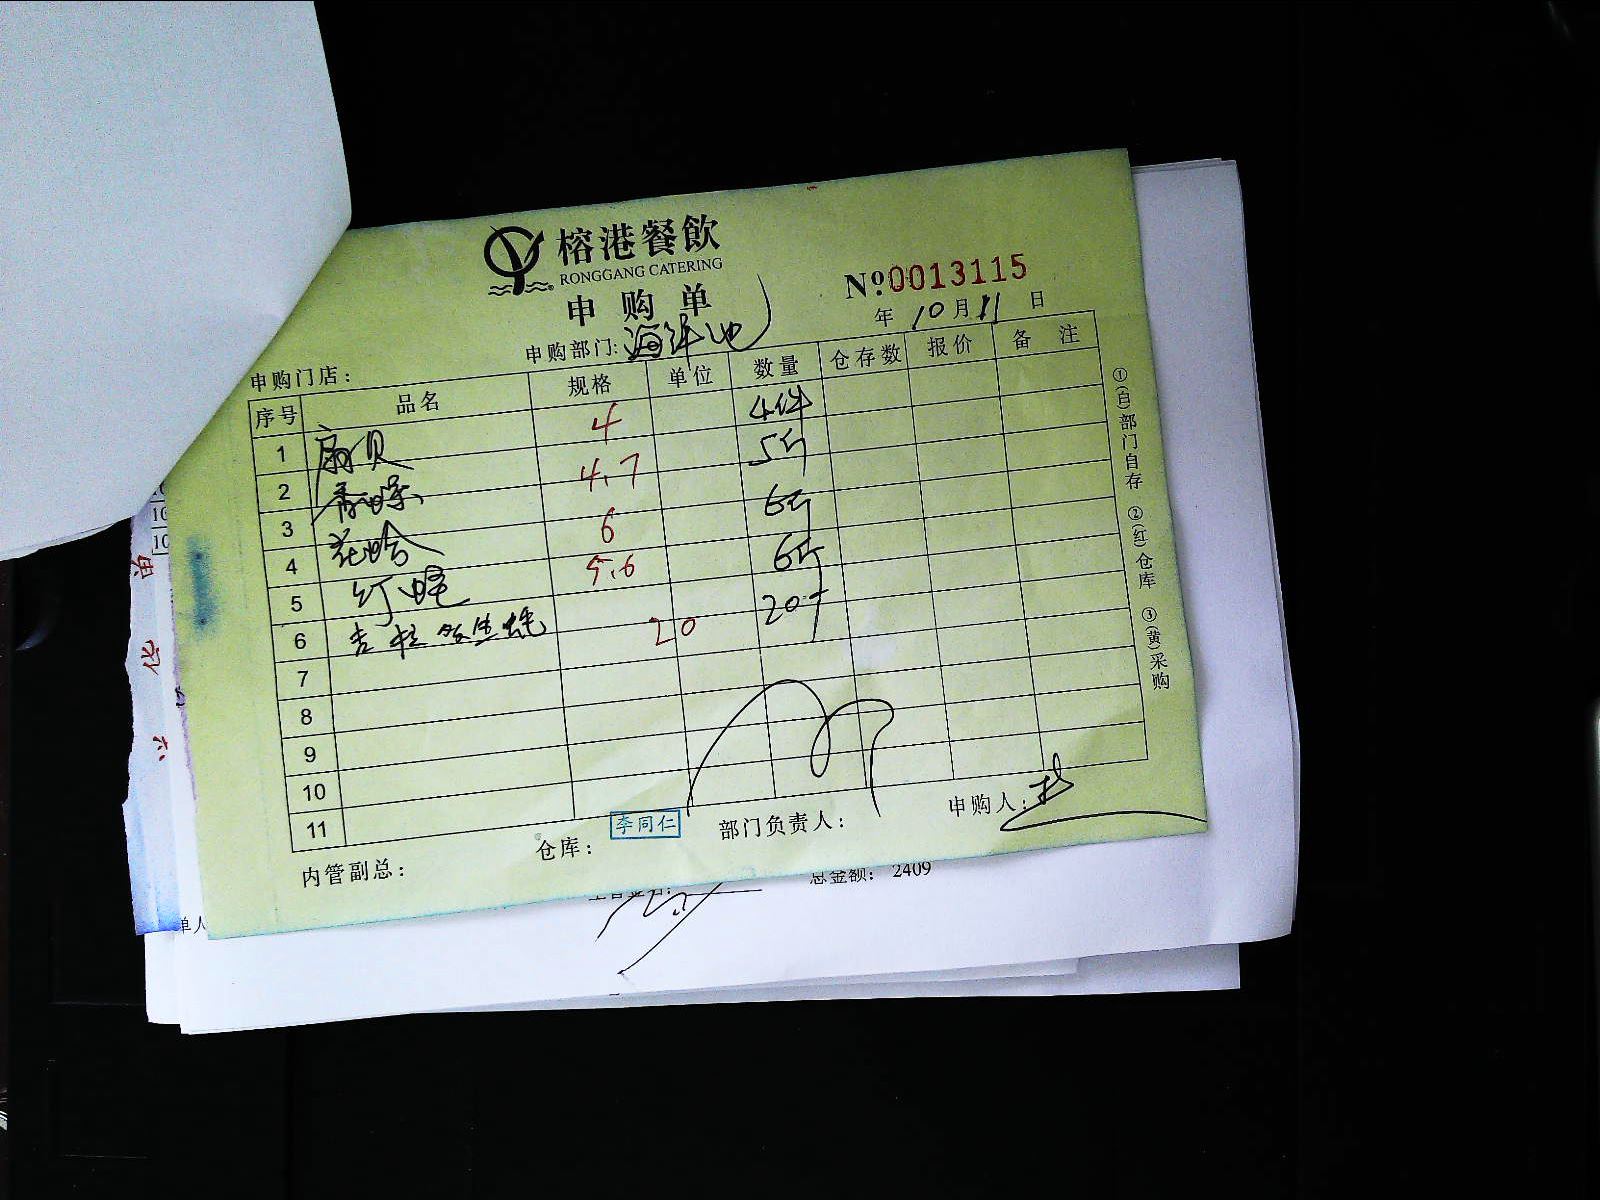 榕港餐飲
RONGGANG CATERING
申购单
№0013115
年 10月11日
申购部门:海鲜池
申购门店:
序号 品名 规格 单位 数量 仓存数 报价 备注
1 扇贝 4 4件
2 青口螺 4.7 5斤
3 花哈 6 6斤
4 红蛏 5.6 6斤
5 吉拉多生蚝 20 20个
6
7
8
9
10
11
①(白)部门自存 ②(红)仓库 ③(黄)采购
内管副总:
仓库:
李同仁
部门负责人:
申购人:
总金额: 2409
单人
10
10